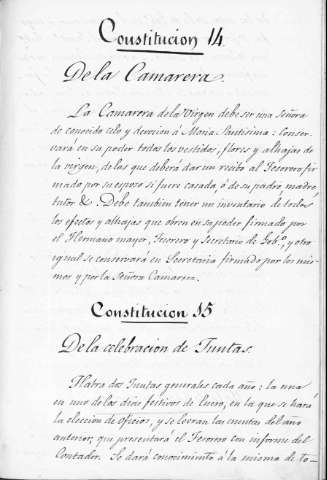 Constitucion 14
De la Camarera.
La Camarera de la Virgen debe ser una Señora
de conocido celo y devocion á Maria Santisima: Conser-
vará en su poder todos los vestidos, flores y alhajas de
la virgen, de las que deberá dar un recibo al Tesorero fir-
mado por su esposo si fuere casada, ó de su padre, madre,
tutor &. Debe tambien tener un inventario de todos
los efectos y alhajas que obren en su poder firmado por
el Hermano mayor, Tesorero y Secretario de Gobº, y otro
igual se conservará en Secretaria firmado por los mis-
mos y por la Señora Camarera.
Constitucion 15
De la celebracion de Juntas.
Habra dos Juntas generales cada año: la una
en uno de los dias festivos de Enero, en la que se hará
la eleccion de oficios, y se leeran las cuentas del año
anterior, que presentará el Tesorero con informe del
Contador. Se dará conocimiento á la misma de to-